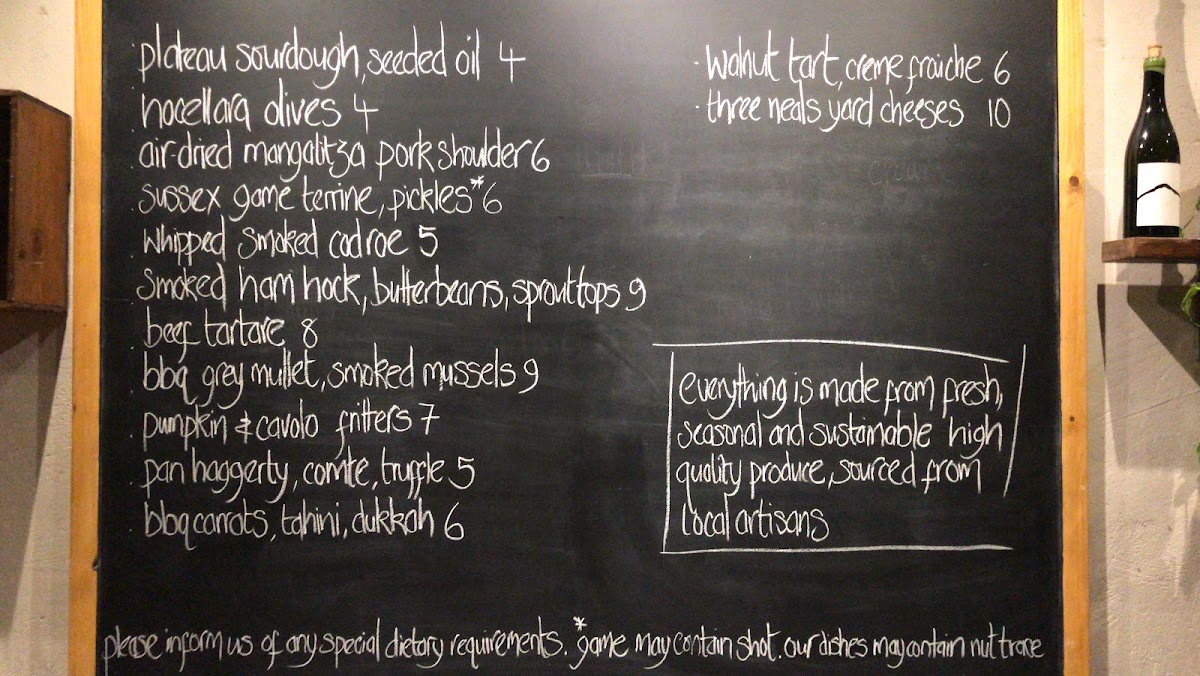 plateau sourdough, seeded oil 4
nocellara olives 4
air-dried mangalitza pork shoulder 6
sussex game terrine, pickles* 6
whipped smoked cod roe 5
smoked ham hock, butterbeans, sprout tops 9
beef tartare 8
bbq grey mullet, smoked mussels 9
pumpkin & cavolo fritters 7
pan haggerty, comte, truffle 5
bbq carrots, tahini, dukkah 6
walnut tart, creme fraiche 6
three neals yard cheeses 10
everything is made from fresh,
seasonal and sustainable high
quality produce, sourced from
local artisans
please inform us of any special dietary requirements. *game may contain shot. our dishes may contain nut trace